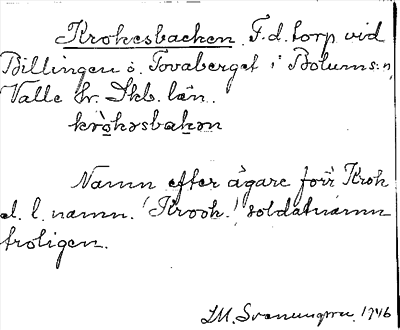 Krokesbacken. F. d. torp vid
Billingen o. Tovaberget i Bolums:n,
Valle hr. Skb. län.
krò̱kəsbakən
Namn efter ägare förr Krok
el. l. namn. (Krook.) soldatnamn
troligen.
1946